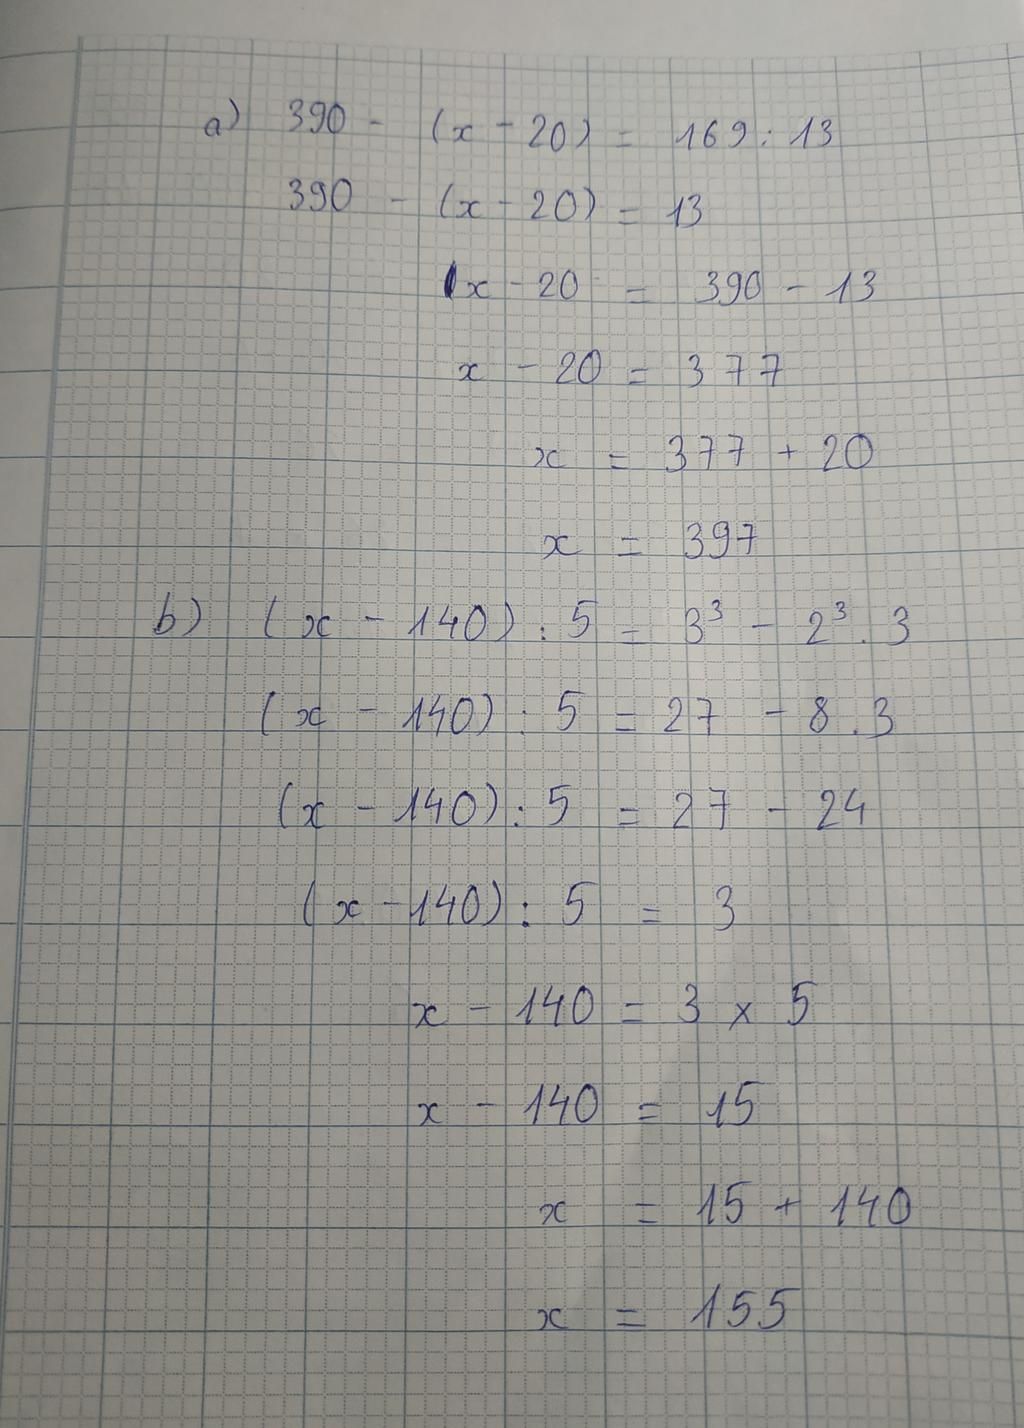 a) 390 - (x - 20) = 169 : 13
390 - (x - 20) = 13
x - 20 = 390 - 13
x - 20 = 377
x = 377 + 20
x = 397
b) (x - 140) : 5 = 3³ - 2³ . 3
(x - 140) : 5 = 27 - 8 . 3
(x - 140) : 5 = 27 - 24
(x - 140) : 5 = 3
x - 140 = 3 × 5
x - 140 = 15
x = 15 + 140
x = 155